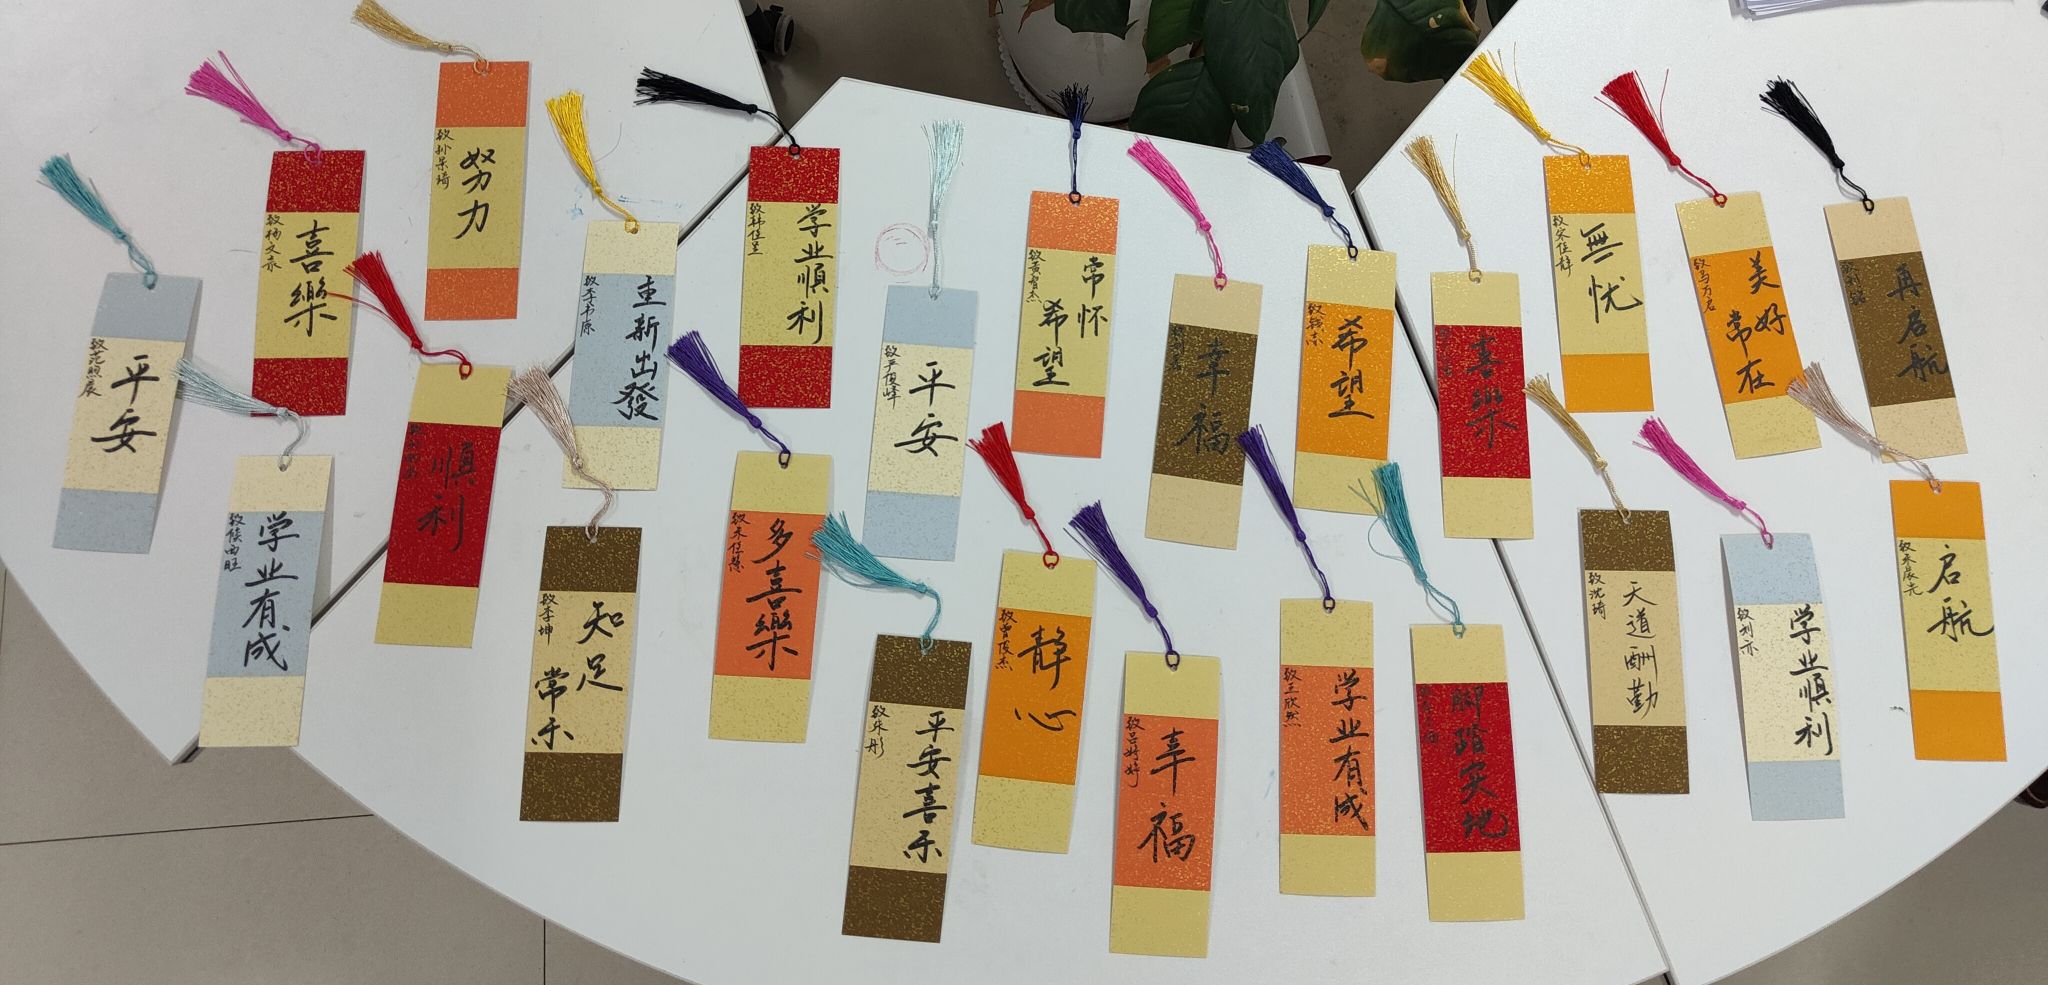 致范照展
平安
致杨文
喜樂
致孙
琦
努力
致侯西旺
学业有成
顺利
致李书原
重新出發
致李坤
知足
常乐
致韩佳呈
学业順利
致朱佳慧
多喜樂
致严俊峰
平安
致朱彤
平安喜乐
致黄智杰
常怀
希望
致曾俊杰
静心
幸福
致吕婷婷
幸福
希望
致王欣然
学业有成
喜樂
脚踏实地
致宋佳静
無忧
致沈琦
天道酬勤
致马万启
美好
常在
致刘亦
学业顺利
再启航
启航